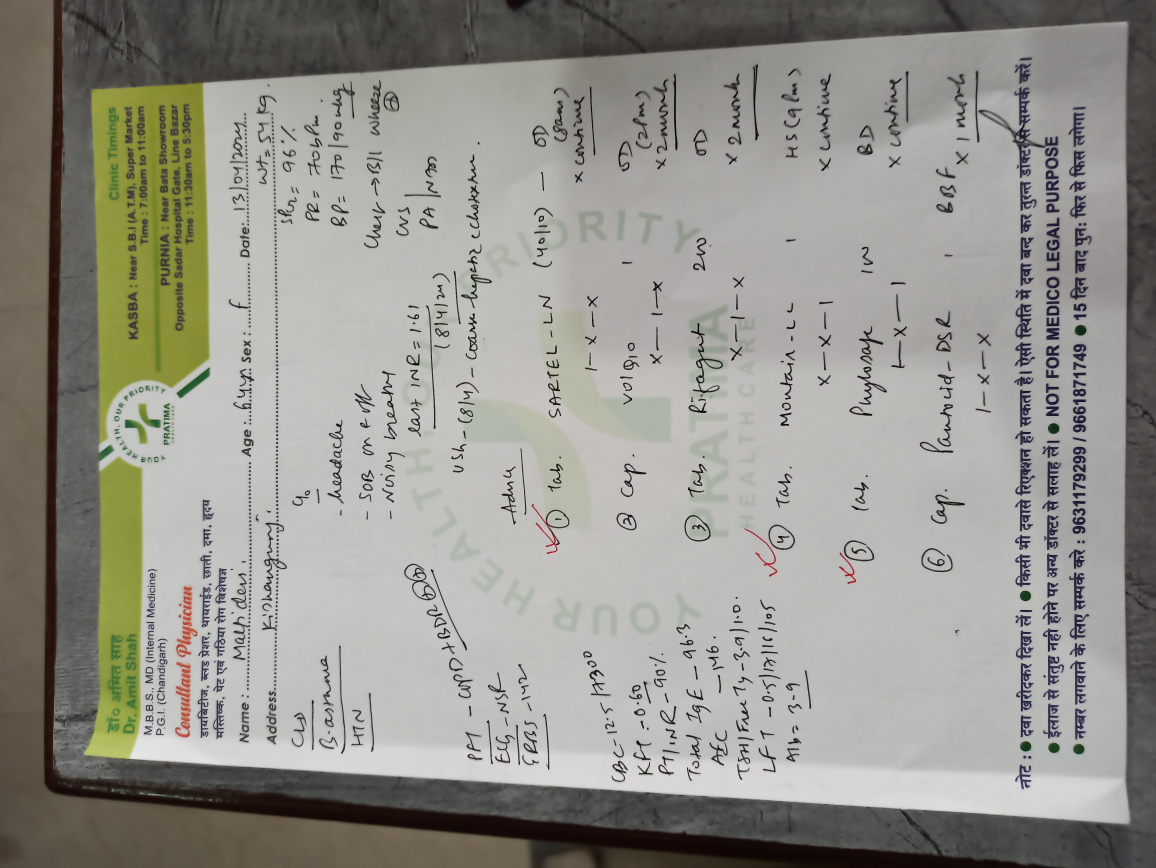 डॉ० अमित साह
Dr. Amit Shah
M.B.B.S., MD (Internal Medicine)
P.G.I. (Chandigarh)
Consultant Physician
डायबिटीज, ब्लड प्रेशर, थायराईड, छाती, दमा, हृदय
मस्तिष्क, पेट एवं गठिया रोग विशेषज्ञ
YOUR HEALTH, OUR PRIORITY
PRATIMA
HEALTHCARE
Clinic Timings
KASBA : Near S.B.I (A.T.M), Super Market
Time : 7:00am to 11:00am
PURNIA: Near Bata Showroom
Opposite Sadar Hospital Gate, Line Bazar
Time : 11:30am to 5:30pm
Name : Malti devi Age : 64yr. Sex : f Date: 13/04/2024
Address Kishanganj. Wt = 54 kg.
CLD
B. asthma
HTN
c/o
- headache
- SOB on & off
- Noisy breathing
SPO2 = 96 %
PR = 70 bpm.
BP = 170/90 mmHg
Chest → B/L wheeze
CVS
PA | NAD
last INR = 1.61
(8/4/24)
USG - (8/4) - coarse hepatic echotexture.
PFT - COPD + BDR
ECG - NSR
GRBS - 142
CBC - 12.5 / 7300
KFT - 0.60
PT/INR - 90%
Total IgE - 963
AEC - 146.
TSH/Free T4 - 3.9/1.0.
LFT - 0.5/17/18/105
Alb = 3.9
Advice
① Tab. SARTEL-LN (40/10) - OD (8am)
1-x-x x continue
② Cap. 1 OD (2pm)
x-1-x x 2 month
③ Tab. Rifagut 200 OD
x-1-x x 2 month
④ Tab. Montair-LC 1 HS (9pm)
x-x-1 x continue
⑤ Tab. BD
1-x-1 x continue
⑥ Cap. Pantocid-DSR 1 BBF
1-x-x x 1 month
YOUR HEALTH OUR PRIORITY
PRATIMA
HEALTH CARE
नोट : ● दवा खरीदकर दिखा लें। ● किसी भी दवासे रिएक्शन हो सकता है। ऐसी स्थिति में दवा बन्द कर तुरन्त डॉक्टर से सम्पर्क करें।
● ईलाज से संतुष्ट नही होने पर अन्य डॉक्टर से सलाह लें। ● NOT FOR MEDICO LEGAL PURPOSE
● नम्बर लगवाने के लिए सम्पर्क करे : 9631179299 / 9661871749 ● 15 दिन बाद पुन: फिर से फिस लगेगा।